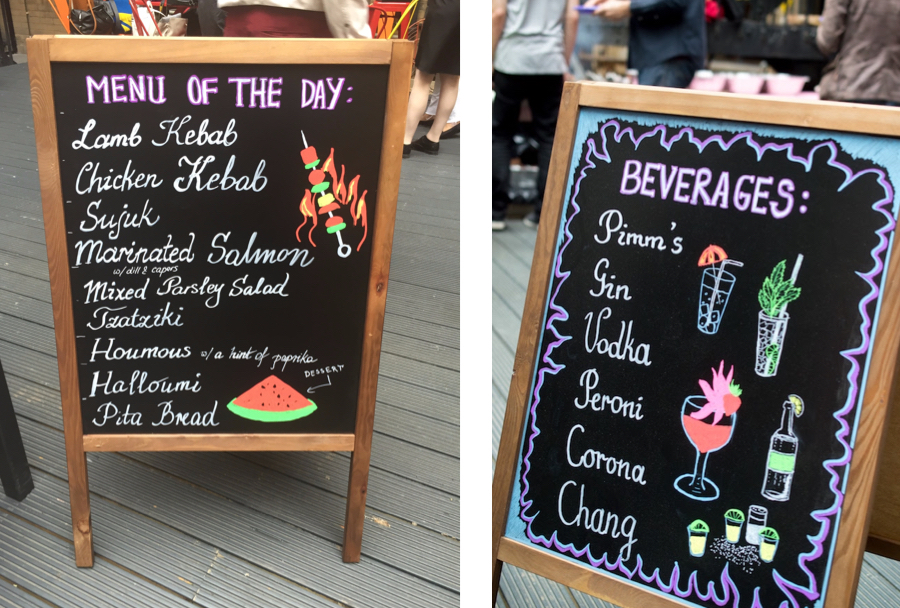 MENU OF THE DAY:
Lamb Kebab
Chicken Kebab
Sujuk
Marinated Salmon
w/ dill & capers
Mixed Parsley Salad
Tzatziki
Houmous w/ a hint of paprika
DESSERT
Halloumi
Pita Bread
BEVERAGES:
Pimm's
Gin
Vodka
Peroni
Corona
Chang